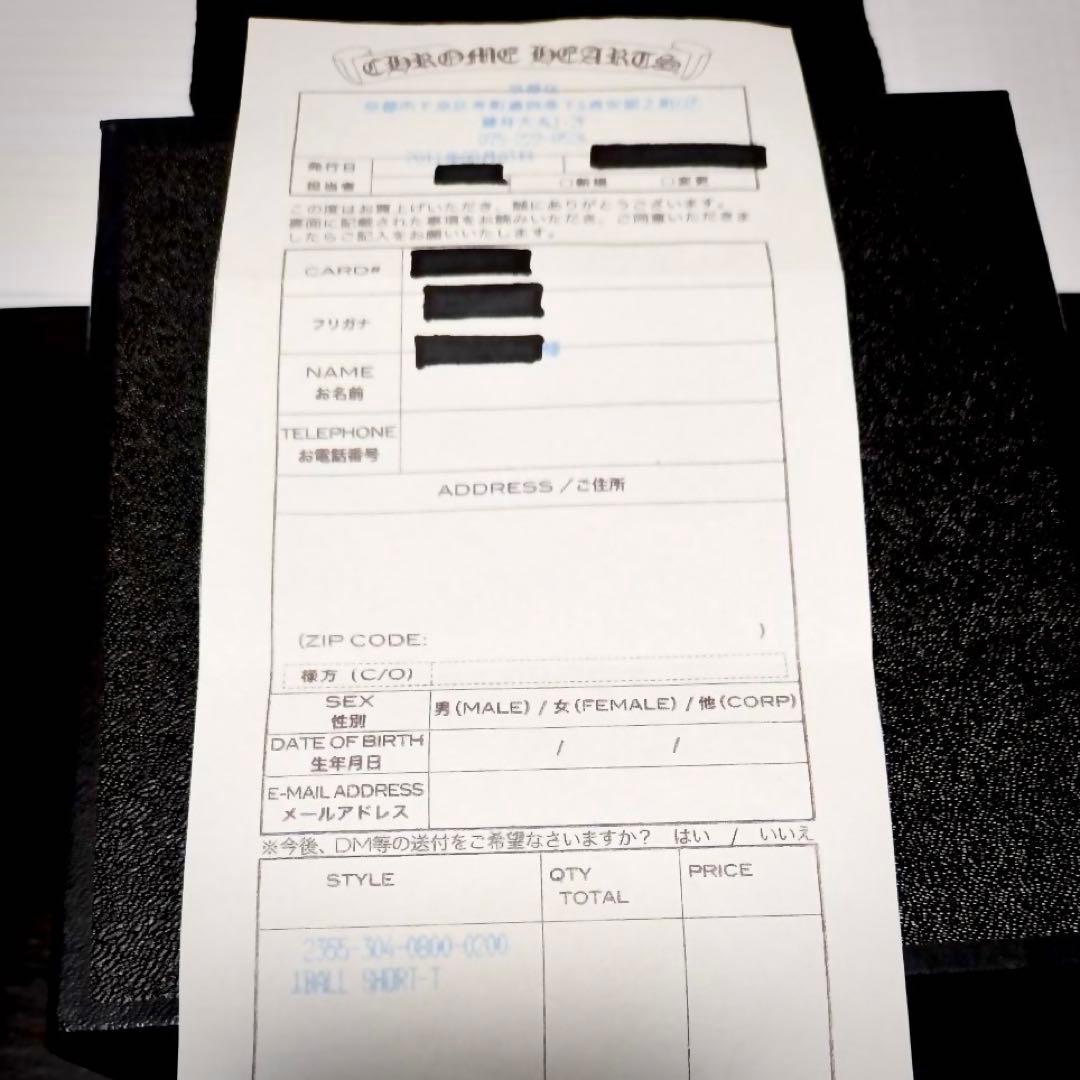 CHROME HEARTS
発行日
担当者 □新規 □変更
この度はお買上げいただき、誠にありがとうございます。
裏面に記載された事項をお読みいただき、ご同意いただきま
したらご記入をお願いいたします。
CARD#
フリガナ
NAME
お名前
様
TELEPHONE
お電話番号
ADDRESS/ご住所
(ZIP CODE: )
様方 (C/O)
SEX
性別
男(MALE) / 女(FEMALE) / 他(CORP)
DATE OF BIRTH
生年月日
/ /
E-MAIL ADDRESS
メールアドレス
※今後、DM等の送付をご希望なさいますか? はい / いいえ
STYLE QTY TOTAL PRICE
2355-304-0800-0200
1BALL SHORT-T